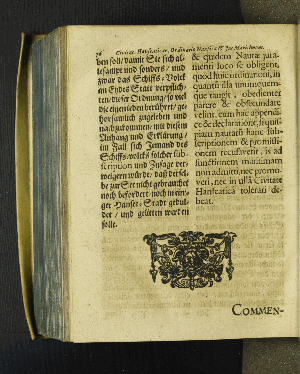 ben soll / damit Sie sich al-
lesampt und sonders / und
zwar das Schiffs-Volck
an Eydes Statt verpflich-
ten / dieser Ordnung / so viel
die einen jeden berühret / ge-
horsamlich zugeleben und
nachzukommen / mit diesem
Anhang und Erklärung /
im Fall sich Jemand des
Schiffs-volcks solcher sub-
scription und Zusage ver-
weigern würde / daß derselbe
zur See nicht gebrauchet
noch befordert / noch in eini-
ger Hansee-Stadt gedul-
det / und gelitten werden
solle.
& quidem Nautæ jura-
menti loco se obligent,
quod huic ordinationi, in
quantum illa unumquem-
que tangit, obedienter
parere & obsecundare
velint, cum hac appendi-
ce & declaratione, si quis-
piam nautarū hanc sub-
scriptionem & promissi-
onem recusaverit, is ad
functionem maritimam
non admitti, nec promo-
veri, nec in ullâ Civitate
Hanseaticâ tolerari de-
beat.
COMMEN-